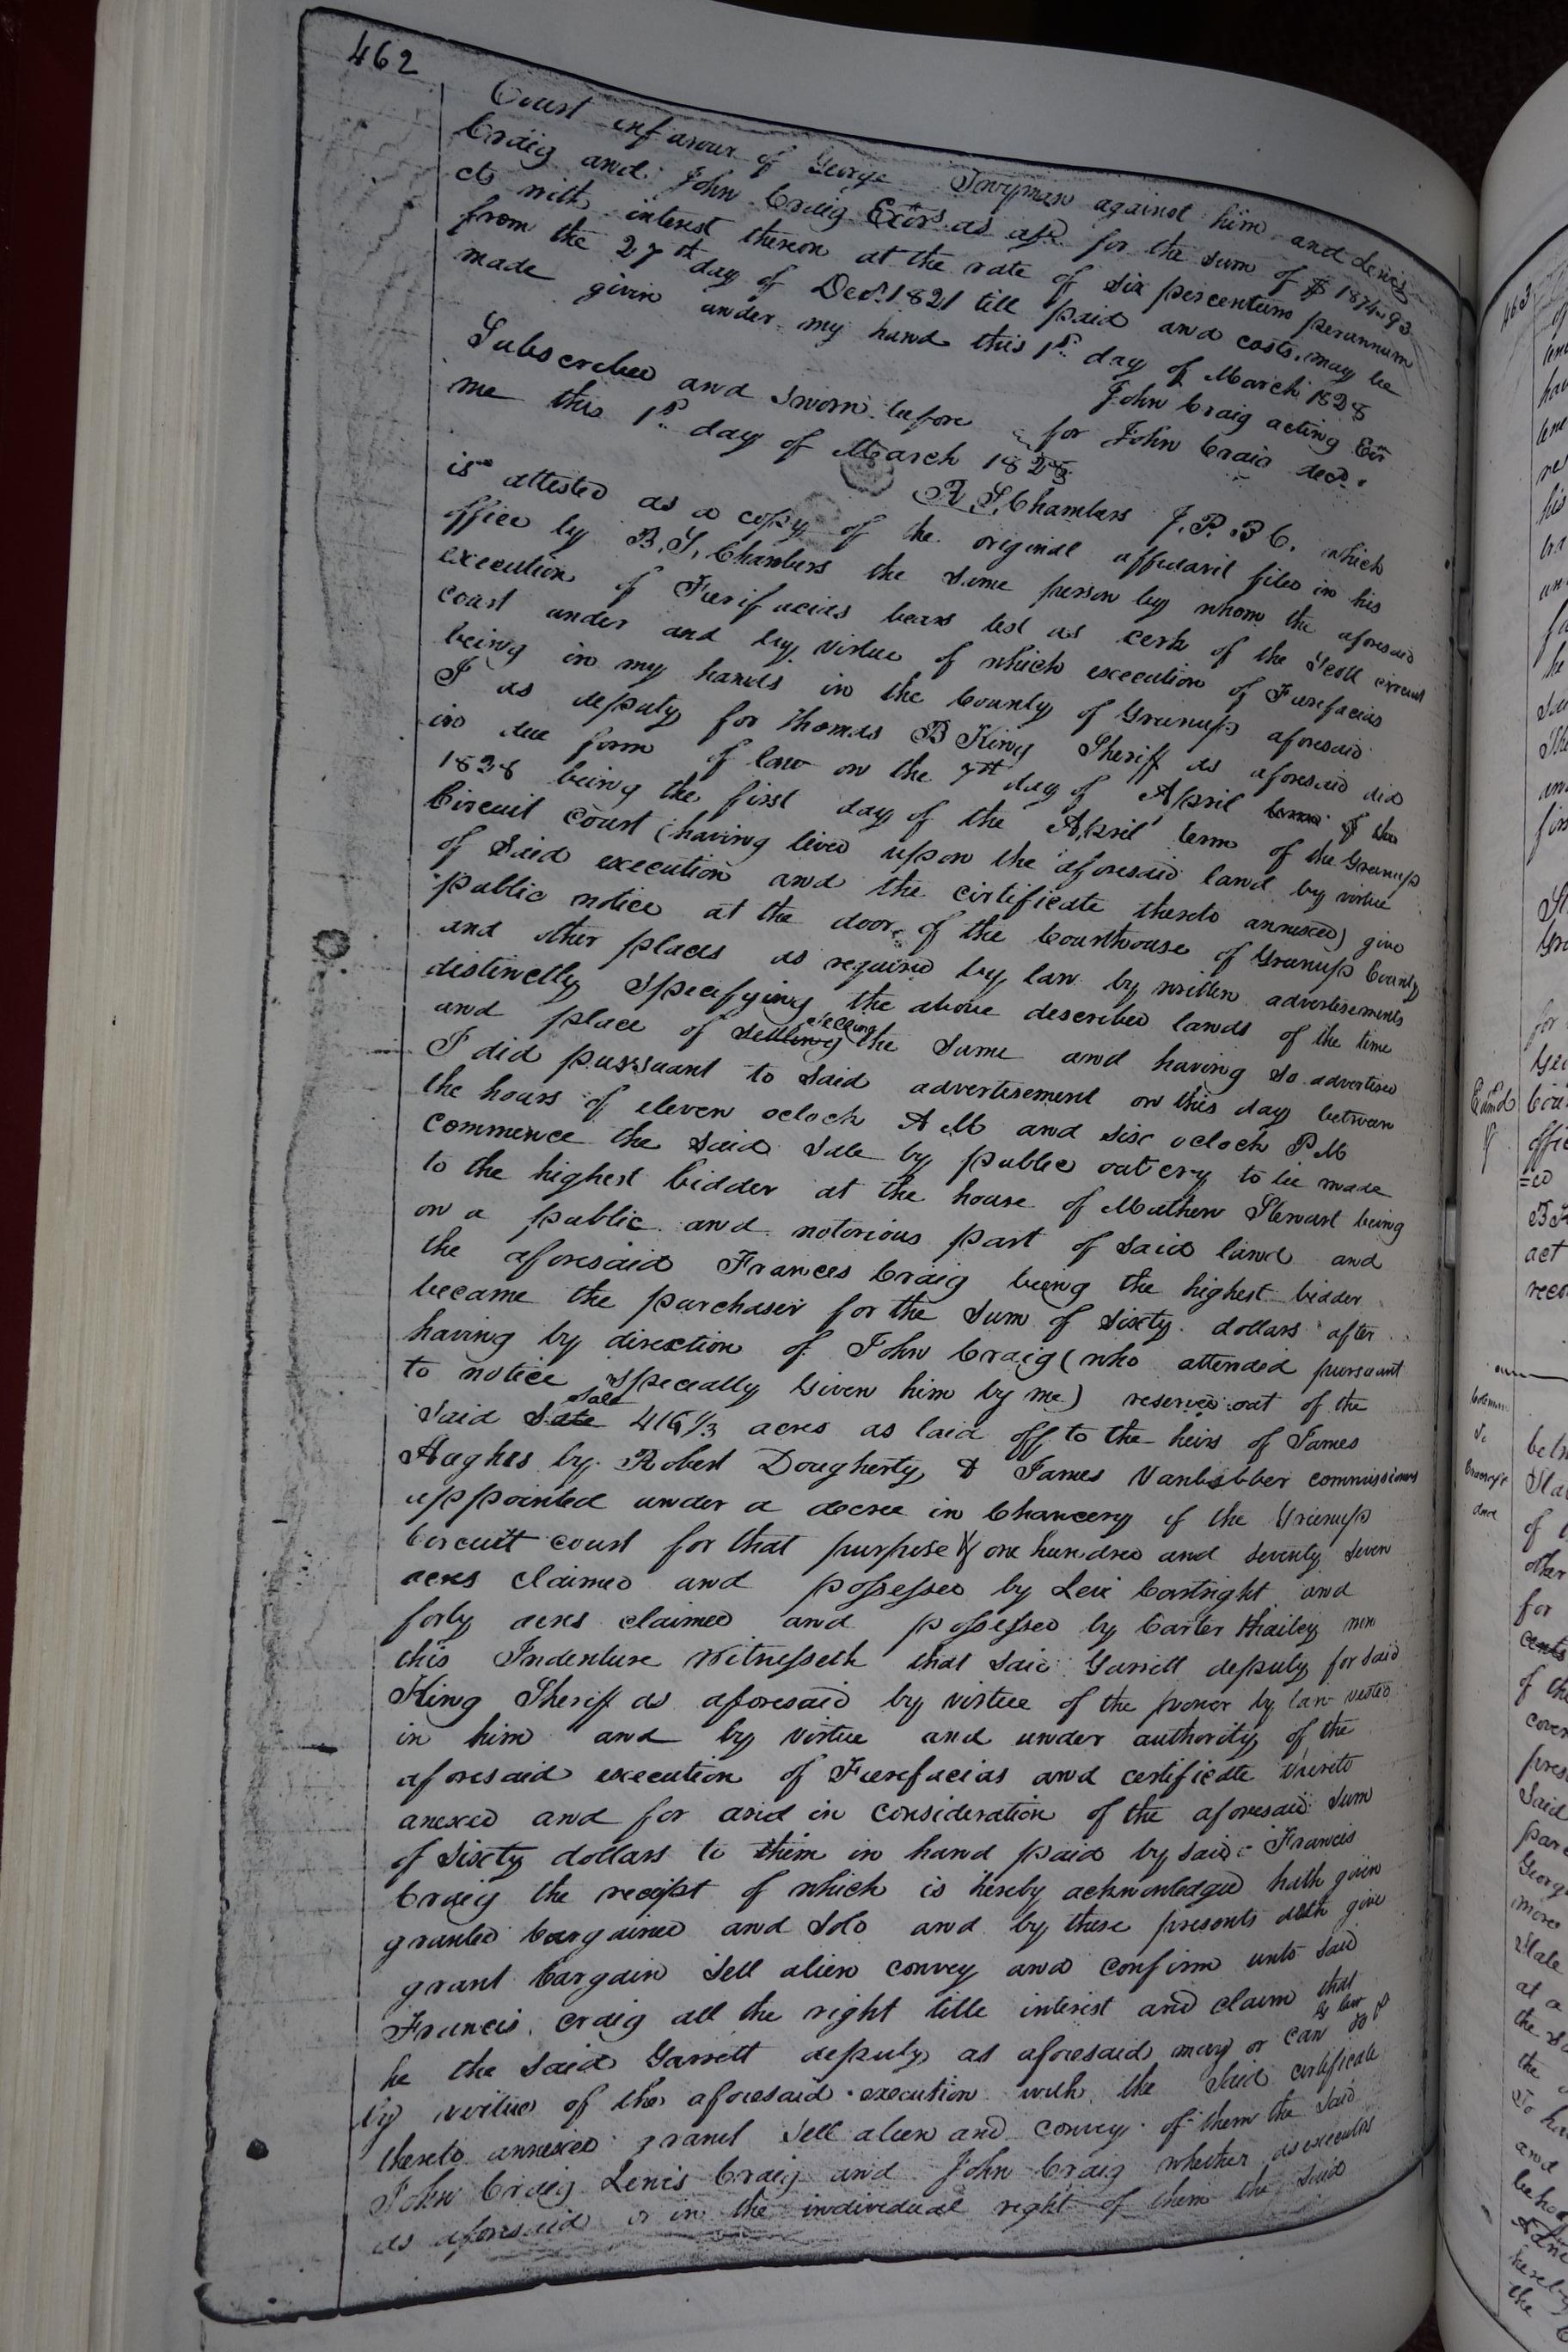 462
Court infavour of George Twyman against him and Lewis
Craig and John Craig Exõrs as afsd for the sum of $ 1874.93
cts with interest thereon at the rate of six percentum perannum
from the 27th day of Decr. 1821 till paid and costs, may be
made given under my hand this 1st day of March 1828
John Craig acting Exõr
Subscribed and sworn before for John Craig decd.
me this 1st day of March 1828
R S. Chambers J. P. B C. which
is attested as a copy of the original affidavit filed in his
office by B. S. Chambers the same person by whom the aforesaid
execution of Fierifacias bears test as cerk of the Scott circuit
court under and by virtue of which execution of Fierefacias
being in my hands in the County of Greenup aforesaid
I as deputy for Thomas B King Sheriff as aforesaid did
in due form of law on the 7th day of April
1828 being the first day of the April term of the Greenup
Circuit court (having levied upon the aforesaid land by virtue
of said execution and the certificate thereto annexed) give
public notice at the door of the Courthouse of Greenup County
and other places as required by law by written advertisements
distinctly specifying the above described lands of the time
and place of selling the same and having so advertised
I did pursuant to said advertisement on this day between
the hours of eleven oclock A M and six oclock P.M
commence the said sale by public out cry to be made
to the highest bidder at the house of Mathew Stewart being
on a public and notorious part of said land and
the aforesaid Frances Craig being the highest bidder
became the purchaser for the sum of sixty dollars after
having by direction of John Craig (who attended pursuant
to notice specially given him by me) reserved out of the
said sale 416 1/3 acres as laid off to the heirs of James
Hughes by Robert Dougherty & James Vanbibber commissioners
appointed under a decree in Chancery of the Greenup
Circuit court for that purpose & one hundred and seventy seven
acres claimed and possessed by Levi Cartright and
forty acres claimed and possessed by Carter Hailey now
this Indenture Witnesseth that said Garrett deputy for said
King Sheriff as aforesaid by virtue of the power by law vested
in him and by virtue and under authority of the
aforesaid execution of Fierefacias and certificate thereto
anexed and for and in consideration of the aforesaid sum
of sixty dollars to him in hand paid by said Francis
Craig the receipt of which is hereby acknowledged hath given
granted bargained and sold and by these presents doth give
grant bargain sell alien convey and confirm unto said
Francis Craig all the right title interest and claim that
he the said Garrett deputy as aforesaid may or can by law
by virtue of the aforesaid execution with the said certificate
thereto annexed grant sell alien and convey of them the said
John Craig Lewis Craig and John Craig whether as executors
as aforesaid or in the individual right of them the said
463